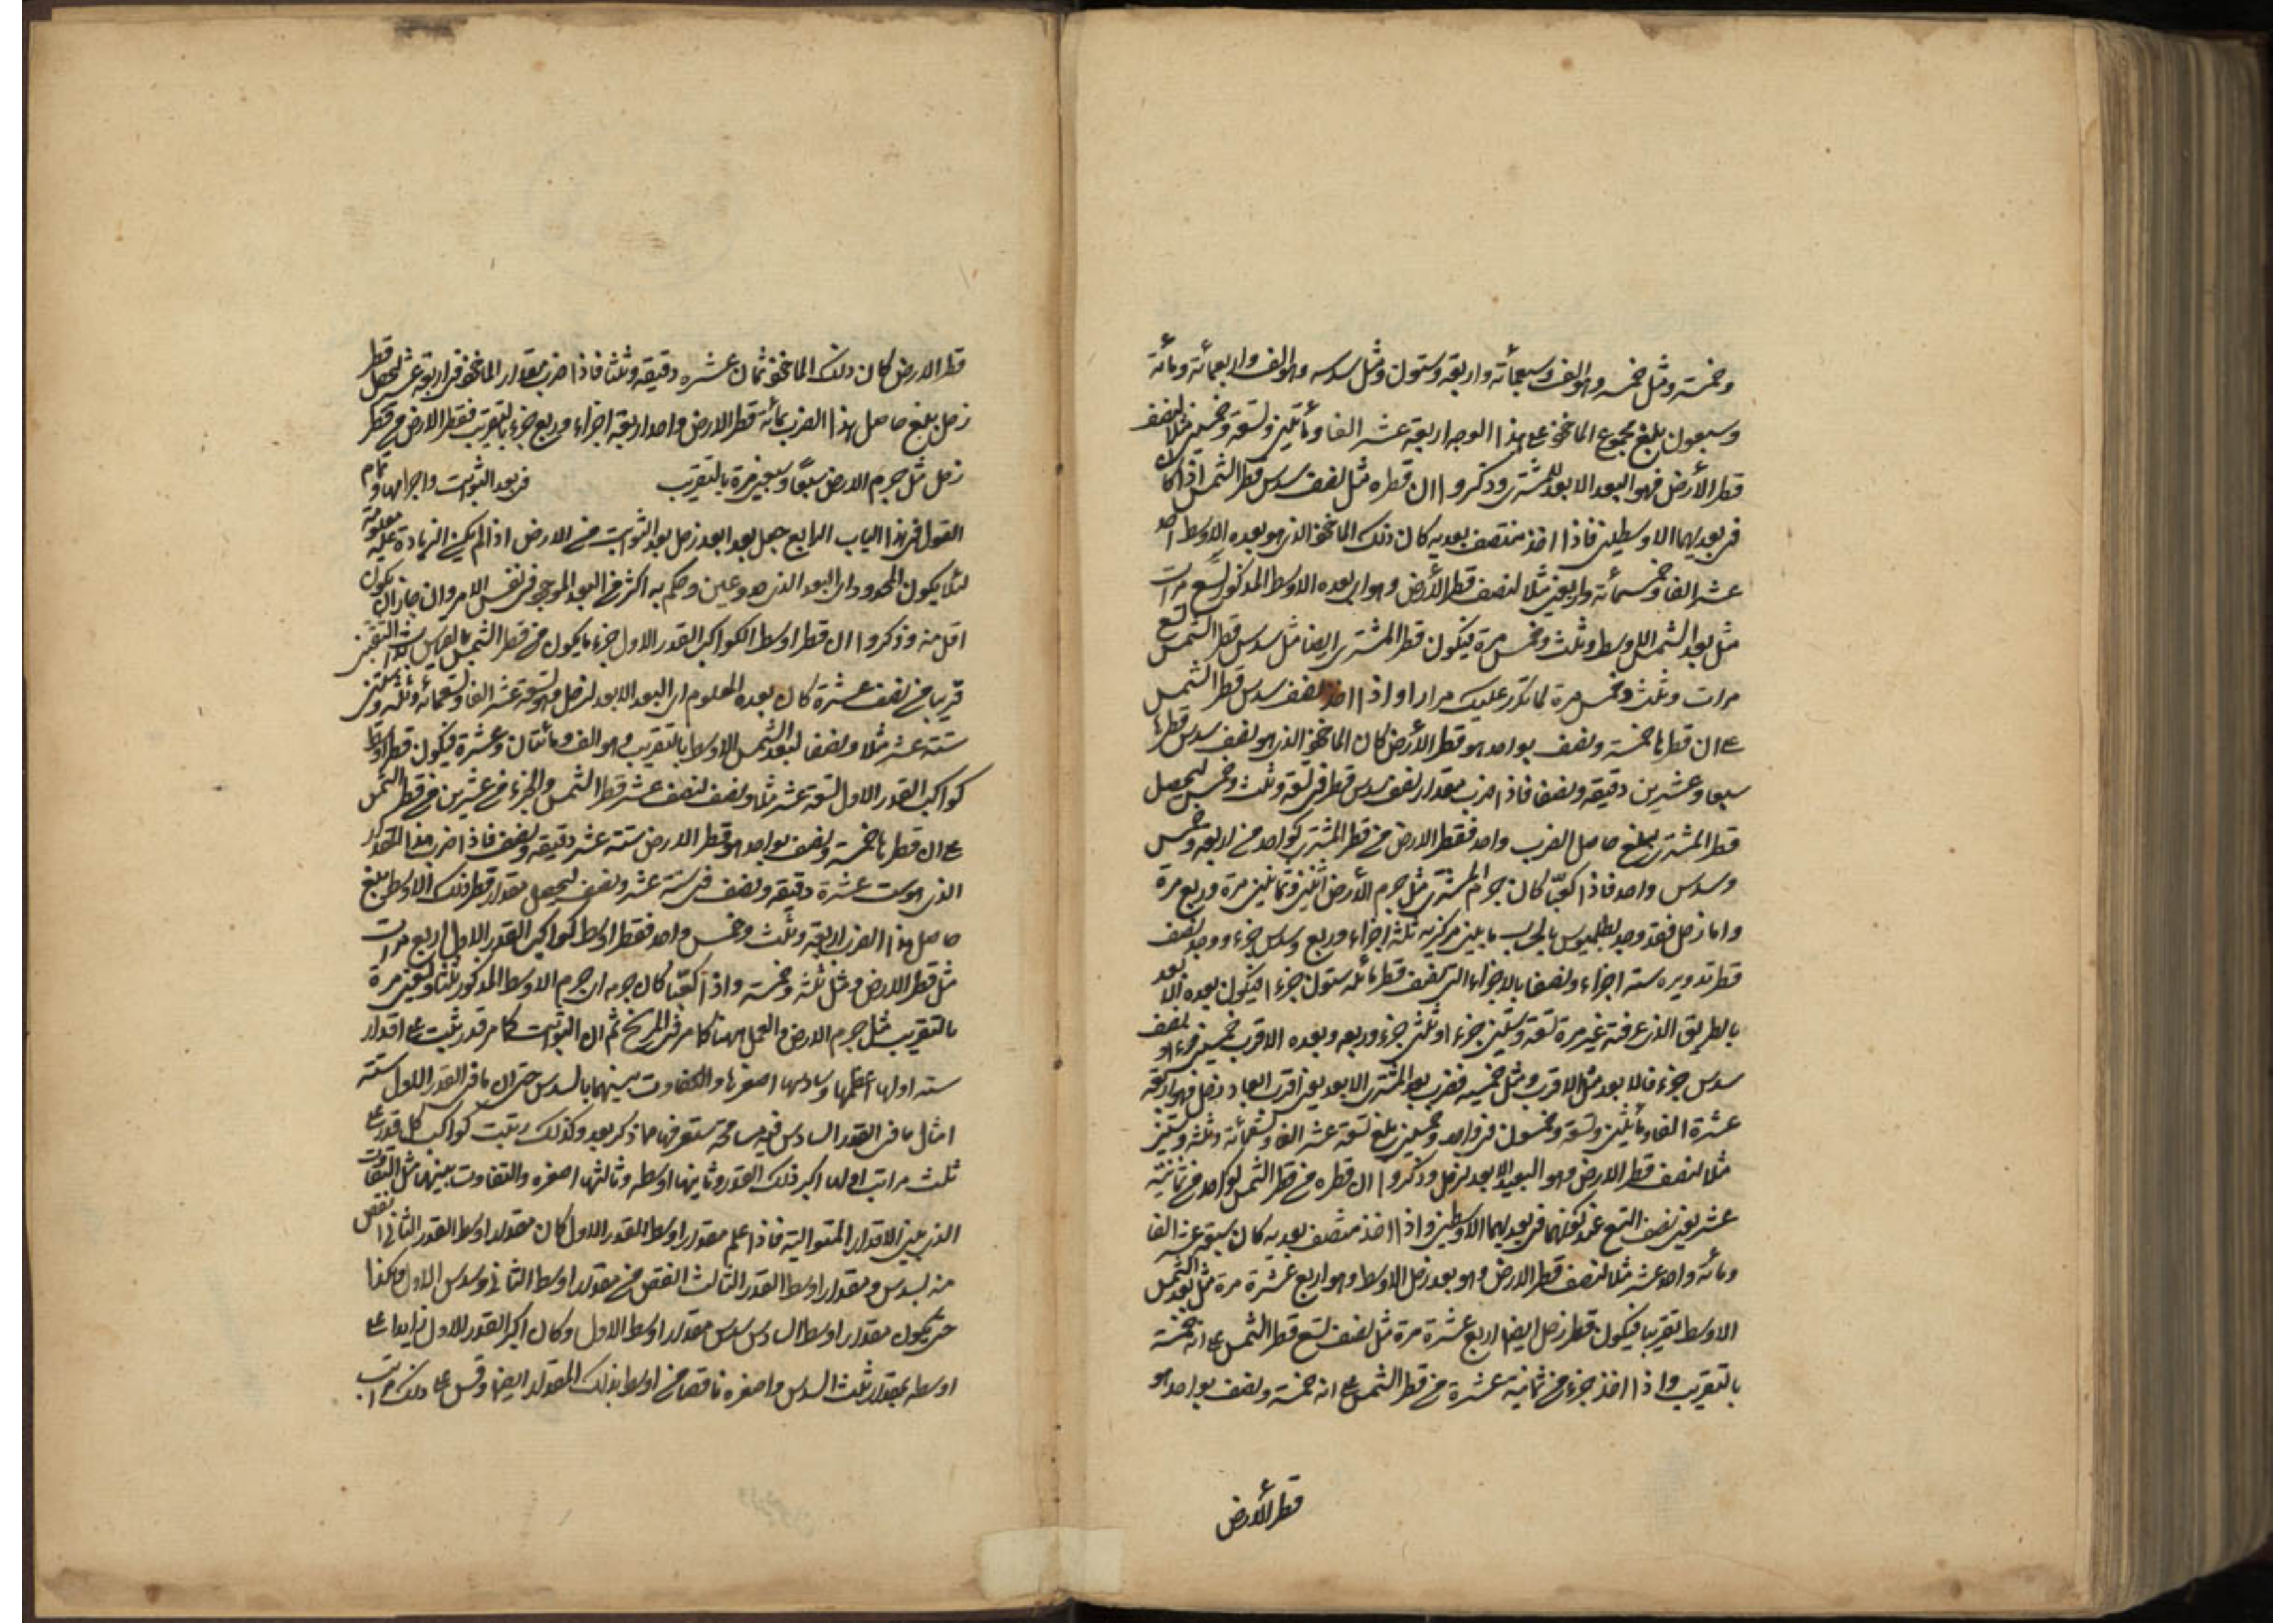 وخمسة ومثل خمسه وهو الف وسبعمائة واربعة وستون ومثل سدسه وهو الف واربعمائة ومائة
وسبعون بلغ مجموع الماخوذ على هذا الوجه اربعة عشر الفا ومأتين وتسعة وخمسين مثلا لنصف
قطر الأرض فهو البعد الابعد للمشترى وذكروا ان قطره مثل نصف سدس قطر الشمس اذا كانا
فى بعديهما الاوسطين فاذا اخذ منتصف بعديه كان ذلك الماخوذ الذى هو بعده الاوسط احد
عشر الفا وخمسمائة واربعين مثلا لنصف قطر الأرض وهو اى بعده الاوسط المذكور تسع مرات
مثل بعد الشمس الاوسط وثلث وخمس مرة فيكون قطر المشترى ايضا مثل سدس قطر الشمس تسع
مرات وثلث وخمس مرة لما تكرر عليك مرارا واذا اخذ نصف سدس قطر الشمس
على ان قطرها خمسة ونصف بواحد هو قطر الأرض كان الماخوذ الذى هو نصف سدس قطرها
سبعا وعشرين دقيقة ونصفا فاذا ضرب مقدار نصف سدس قطر فى تسعة وثلث وخمس ليحصل
قطر المشترى بلغ حاصل الضرب واحد فقطر الارض من قطر المشترى كواحد من اربعة وخمس
وسدس واحد فاذا كعبا كان جرم المشترى مثل جرم الأرض اثنين وثمانين مرة وربع مرة
واما زحل فقد وجد بطلميوس بالحساب ما بين مركزيه ثلثة اجزاء وربع وسدس جزء ووجد نصف
قطر تدويره ستة اجزاء ونصفا بالاجزاء التى نصف قطر مائله ستون جزءا فيكون بعده الابعد
بالطريق الذى عرفته غير مرة تسعة وستين جزءا وثلثى جزء وربعه وبعده الاقرب خمسين جزءا ونصف
سدس جزء فالابعد مثل الاقرب ومثل خمسيه فضرب بعد المشترى الابعد يعنى اقرب ابعاد زحل فهو اربعة
عشرة الفا ومأتين وتسعة وخمسون فى واحد وخمسين بلغ تسعة عشر الفا وتسعمائة وثلثة وستين
مثلا لنصف قطر الارض وهو البعد الابعد لزحل وذكروا ان قطره من قطر الشمس كواحد من ثمانية
عشر يعنى نصف التسع عند كونهما فى بعديهما الاوسطين واذا اخذ منتصف بعديه كان سبعة عشر الفا
ومائة واحد عشر مثلا لنصف قطر الارض وهو بعد زحل الاوسط وهو اربع عشرة مرة مثل بعد الشمس
الاوسط تقريبا فيكون قطر زحل ايضا اربع عشرة مرة مثل نصف تسع قطر الشمس على انه خمسة
بالتقريب واذا اخذ جزء من ثمانية عشرة من قطر الشمس على انه خمسة ونصف بواحد هو
قطر الأرض
قطر الارض كان ذلك الماخوذ ثمان عشرة دقيقة وثلثا فاذا ضرب مقدار الماخوذ فى اربعة عشر ليحصل قطر
زحل بلغ حاصل هذا الضرب بما به قطر الارض واحد اربعة اجزاء وربع جزء بالتقريب فقطر الارض من قطر
زحل مثل جرم الارض سبعا وسبعين مرة بالتقريب فى بعد الثوابت واجرامها وتمام
القول فى هذا الباب الرابع جعل بعد ابعد زحل بعد الثوابت من الارض اذا لم يكن الزيادة عليه معلومة
لئلا يكون المحدود اى البعد الذى حد وعين وحكم به اكثر من البعد الموجود فى نفس الامر وان جاز ان يكون
اقل منه وذكروا ان قطر اوسط الكواكب القدر الاول جزء ما يكون من قطر الشمس بالقياس
قريبا من نصف عشرة كان بعده المعلوم اى البعد الابعد لزحل هو تسعة عشر الفا وتسعمائة وثلثة وستون
ستة عشر مثلا ونصفا لبعد الشمس الاوسط بالتقريب وهو الف ومائتان وعشرة فيكون قطر اوسط
كواكب القدر الاول لستة عشر مثلا ونصف لنصف عشر قطر الشمس والجزء من عشرين من قطر الشمس
على ان قطرها خمسة ونصف بواحد هو قطر الارض ستة عشر دقيقة ونصف فاذا ضرب هذا المقدار
الذى هو ست عشرة دقيقة ونصف فى ستة عشر ونصف ليحصل مقدار قطر ذلك الاوسط بلغ
حاصل هذا الضرب اربعة وثلث وخمس واحد فقطر اوسط كواكب القدر الاول اربع مرات
مثل قطر الارض ومثل ثلثه وخمسه واذا كعبا كان جرمه اى جرم الاوسط المذكور ثلثا وتسعين مرة
بالتقريب مثل جرم الارض والعمل ههنا كما مر فى المريخ ثم ان الثوابت كما مر قد رتبت على اقدار
ستة اولها اعظمها وسادسها اصغرها والتفاوت بينهما بالسدس حتى ان ما فى القدر الاول ستة
امثال ما فى القدر السادس فيه مسامحة ستعرفها مما ذكر بعد وكذلك رتبت كواكب كل قدر على
ثلث مراتب اولها اكبر ذلك القدر وثانيها اوسطه وثالثها اصغره والتفاوت بينهما مثل التفاوت
الذى بين الاقدار المتوالية فاذا علم مقدار اوسط القدر الاول كان مقدار اوسط القدر الثانى انقص
منه بسدس ومقدار اوسط القدر الثالث انقص من مقدار اوسط الثانى بسدس الاول وهكذا
حتى يكون مقدار اوسط السادس سدس مقدار اوسط الاول وكان اكبر القدر الاول زايدا على
اوسطه بمقدار ثلث السدس واصغره ناقصا من اوسط بذلك المقدار ايضا وقس على ذلك مراتب